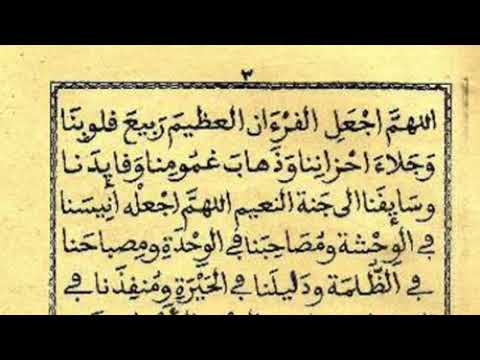 ٣
اللهمَّ اجْعَلِ القُرْءَان العظيمَ رَبِيعَ قلوبِنَا
وَجَلاءَ احْزانِنا وَذَهابَ غمُومِنا وَقايِدَنا
وسَايِقَنا الى جَنة النعيم اللهمَّ اجعلْه أنِيسَنا
فِي الوَحْشة ومُصَاحِبَنا فِي الوَحْدَةِ ومِصباحَنا
فِي الظُّلمَة ودَلِيلَنا فِي الحَيْرَةِ ومُنقِذَنا فِي